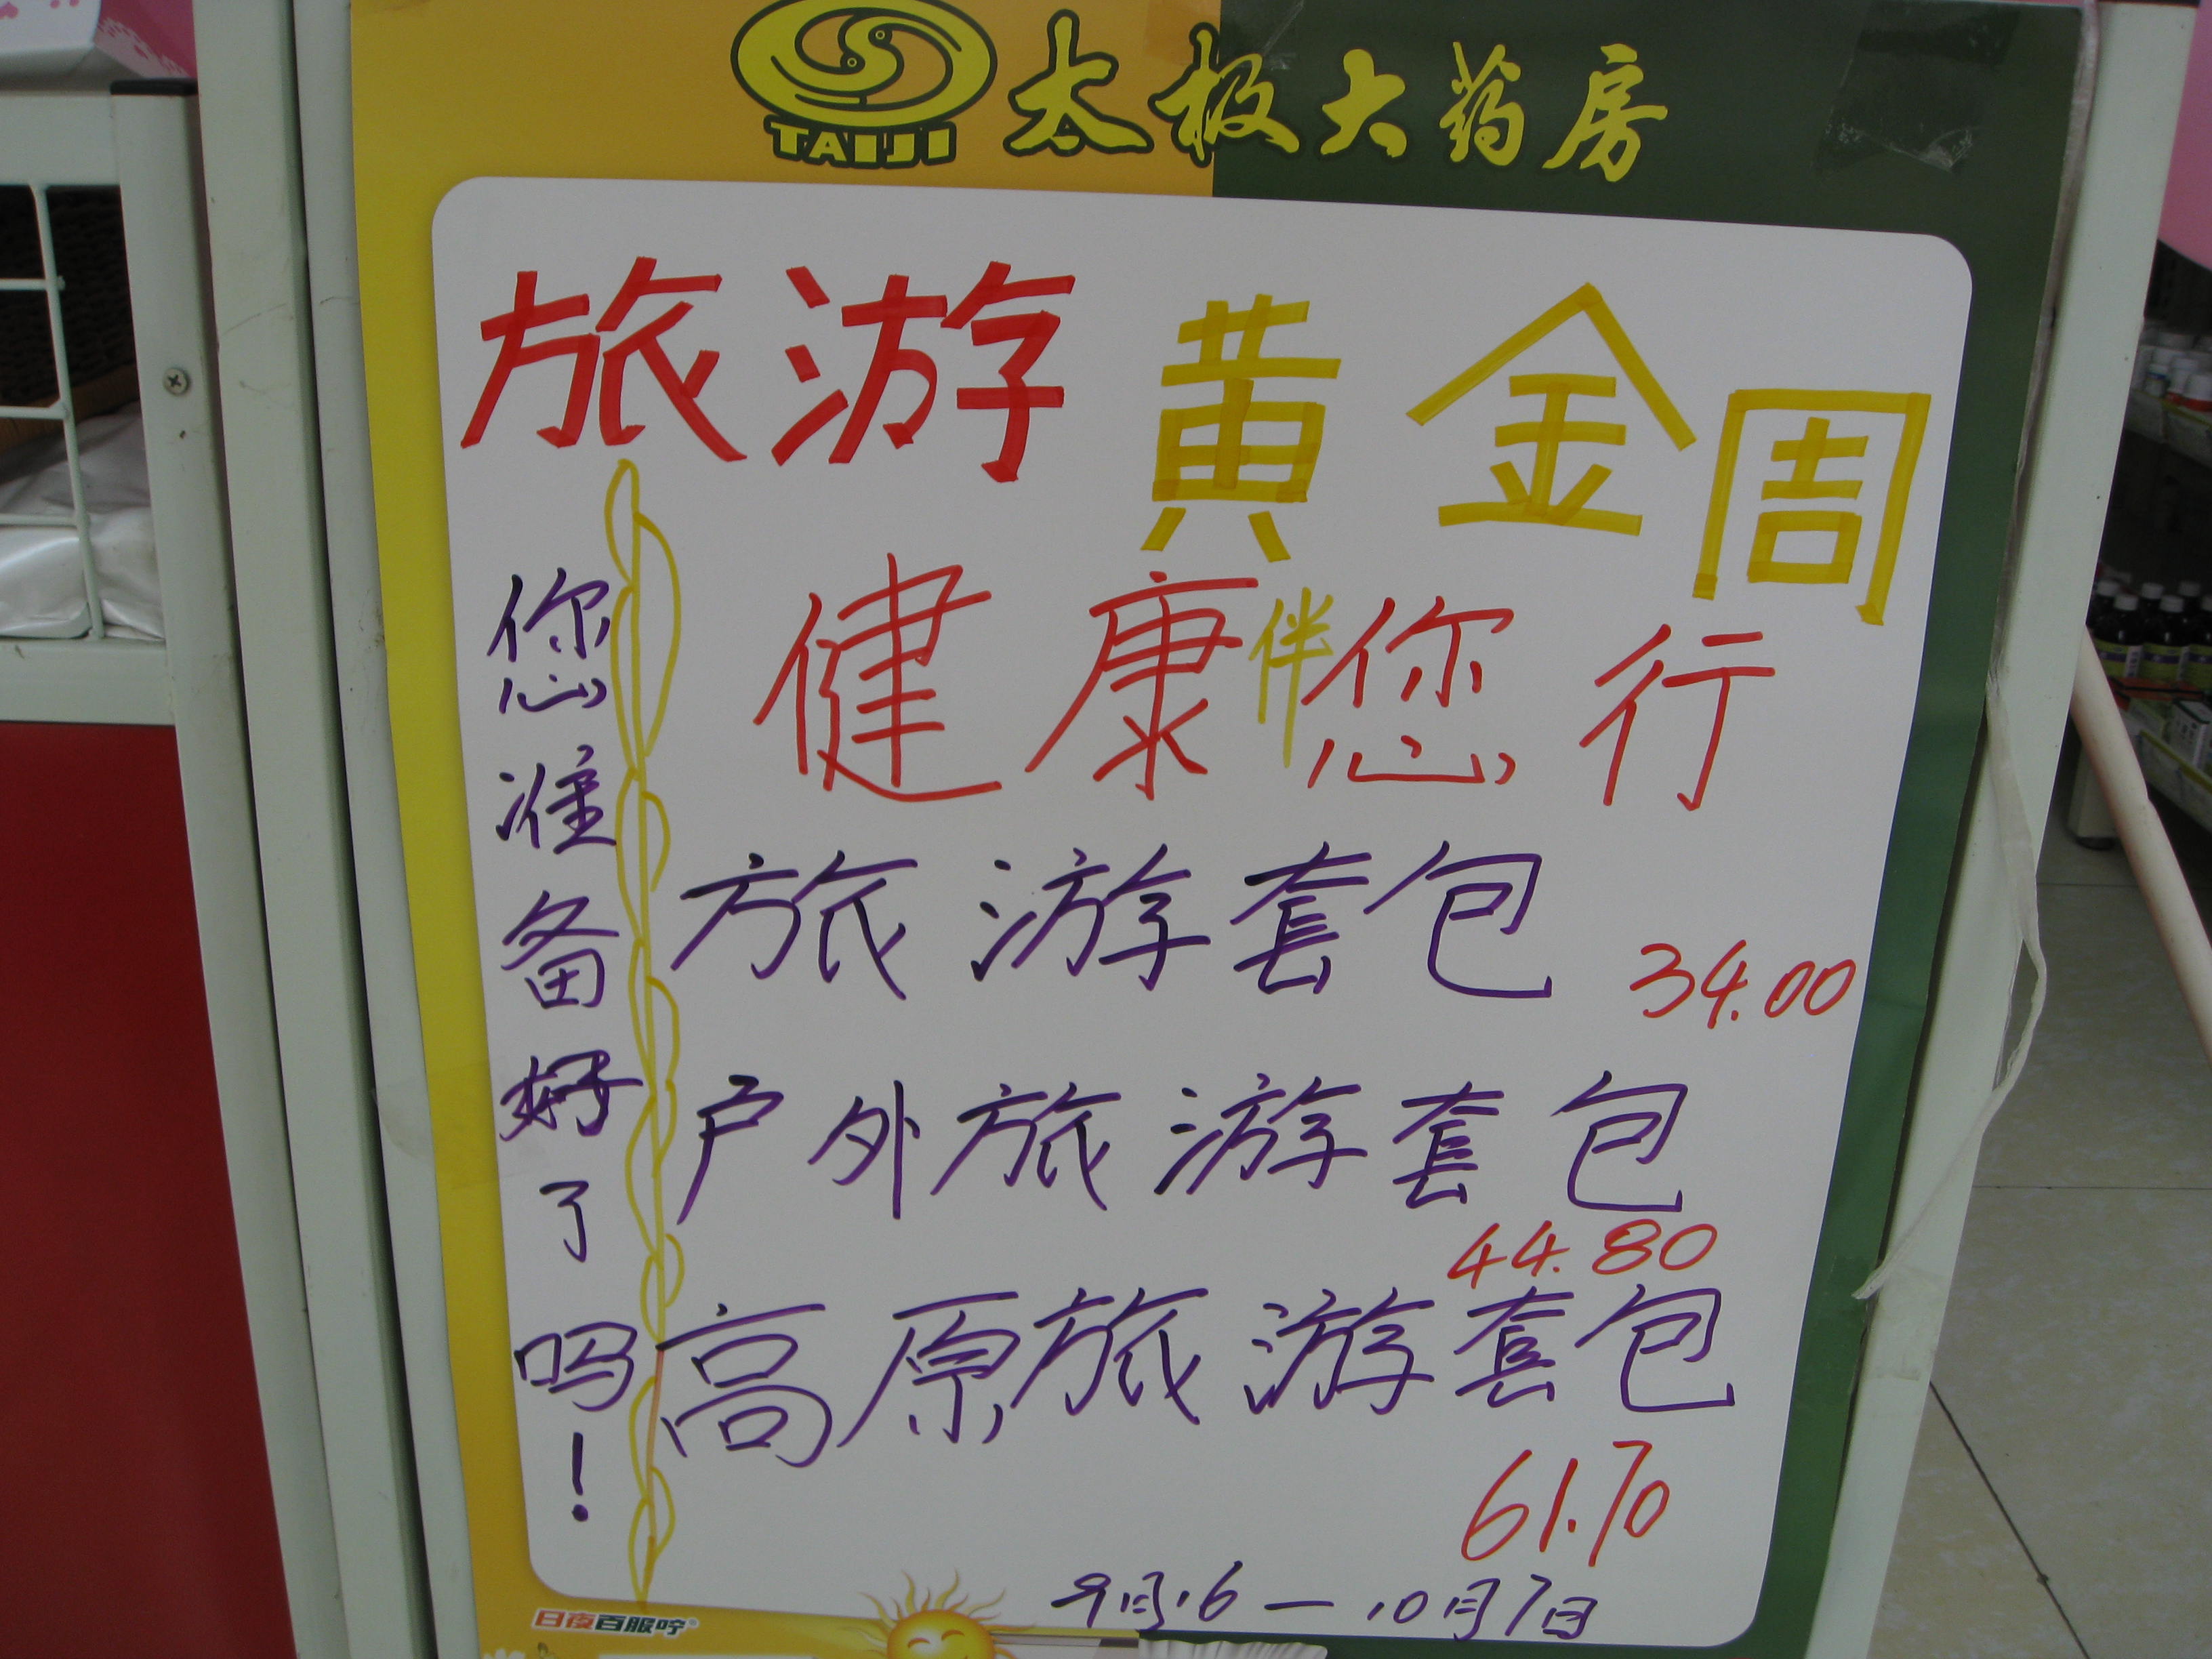 TAIJI 太极大药房
旅游 黄金周
健康伴您行
您准备好了吗!
旅游套包 34.00
户外旅游套包
44.80
高原旅游套包
61.70
9月16—10月7日
日夜百服咛®